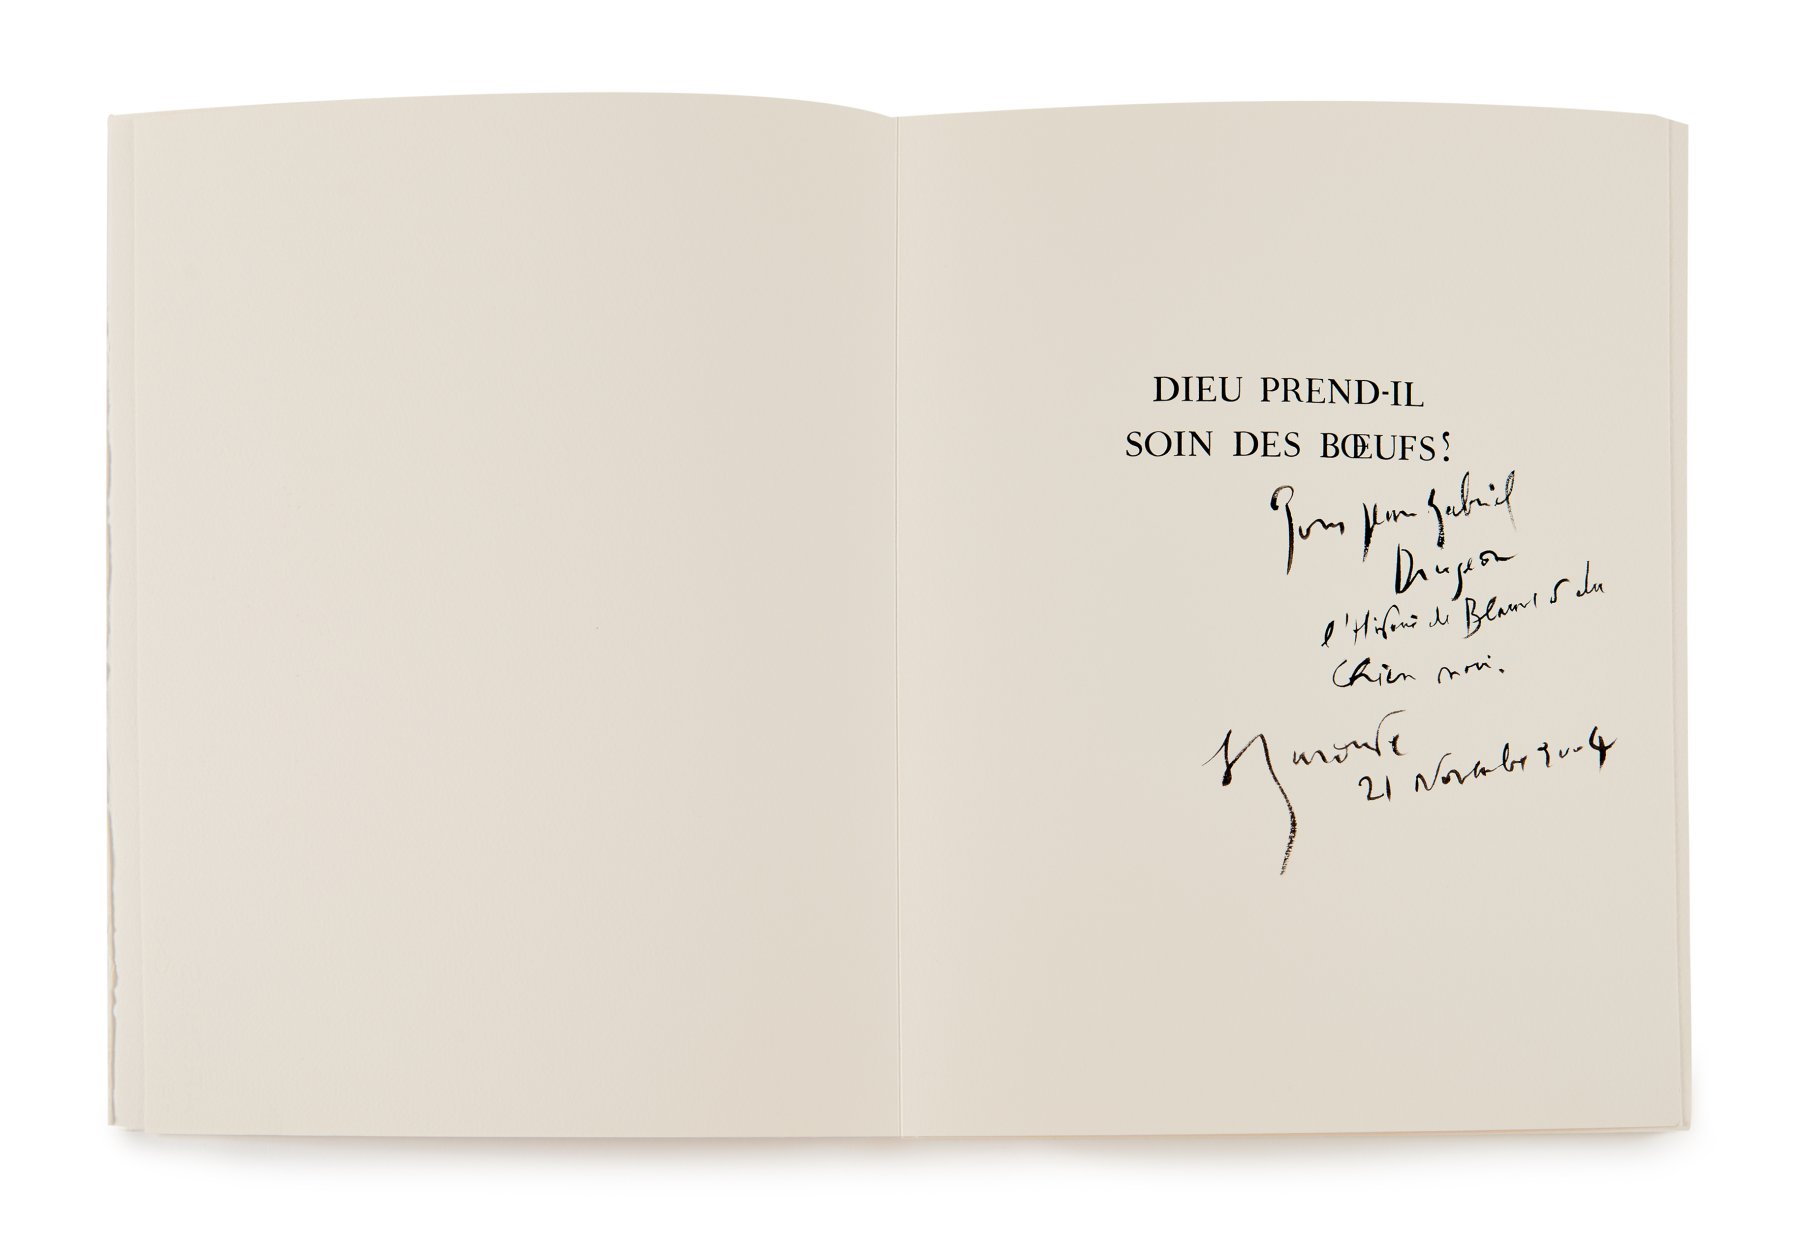 DIEU PREND-IL
SOIN DES BŒUFS?
Pour Jean Gabriel
l'Histoire de Blanus & du
Chien noir.
21 Novembre 2004